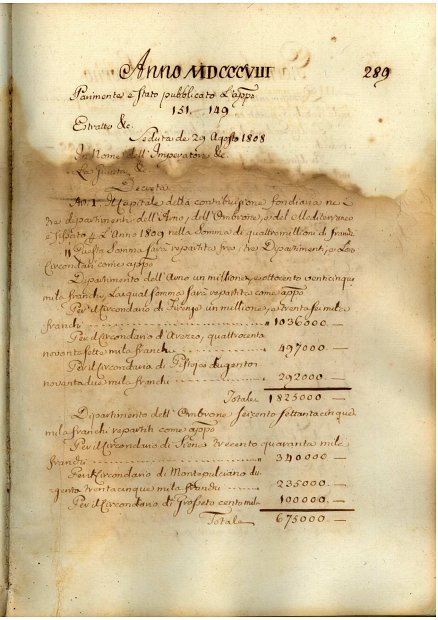 Anno MDCCCVIII 289
Parimente è stato pubblicato l'appo
151. 149
Estratto &c.
Seduta de 29 Agosto 1808
In Nome dell'Imperatore &c.
La Giunta &c.
Decreta
Art. 1. Il Capitale della contribuzione fondiaria ne i
tre dipartimenti dell'Arno, dell'Ombrone, e del Mediterraneo
è fissato p. l'Anno 1809 nella Somma di quattro millioni di franchi
Questa Somma sarà repartita fra i tre Dipartimenti, e loro
Circondari come appo
Dipartimento dell'Arno un millione, e ottocento venticinque
mila franchi, La qual somma sarà repartita come appo
Per il Circondario di Firenze un millione, e trentasei mila
franchi " 1036000. —
Per il Circondario d'Arezzo, quattrocento
novantasette mila franchi 497000 —
Per il Circondario di Pistoja dugento
novantadue mila franchi 292000 —
Totale 1825000 —
Dipartimento dell'Ombrone seicento settantacinque
mila franchi repartiti come appo
Per il Circondario di Siena trecento quaranta mila
franchi 340000 —
Per il Circondario di Montepulciano du-
gento trentacinque mila franchi 235000 —
Per il Circondario di Grosseto cento mila 100000 —
Totale 675000 —